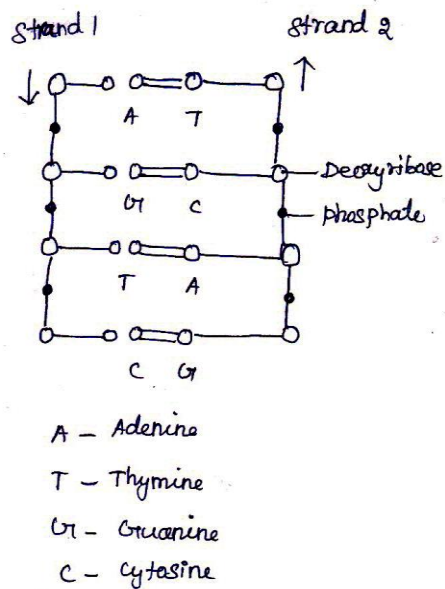 Strand 1 Strand 2
A T
Deoxyribase
G C
phosphate
T A
C G
A - Adenine
T - Thymine
G - Guanine
C - Cytosine